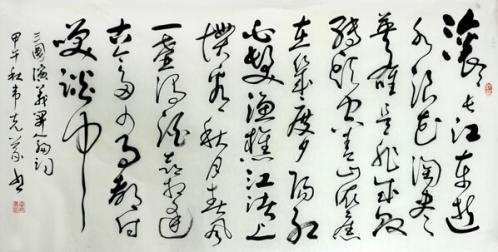 滚々长江东逝
水浪花淘尽
英雄是非成败
转头空青山依旧
在几度夕阳红
白发渔樵江渚上
惯看秋月春风
一壶浊酒喜相逢
古今多少事都付
笑谈中
三國演義词
甲午秋韦克书